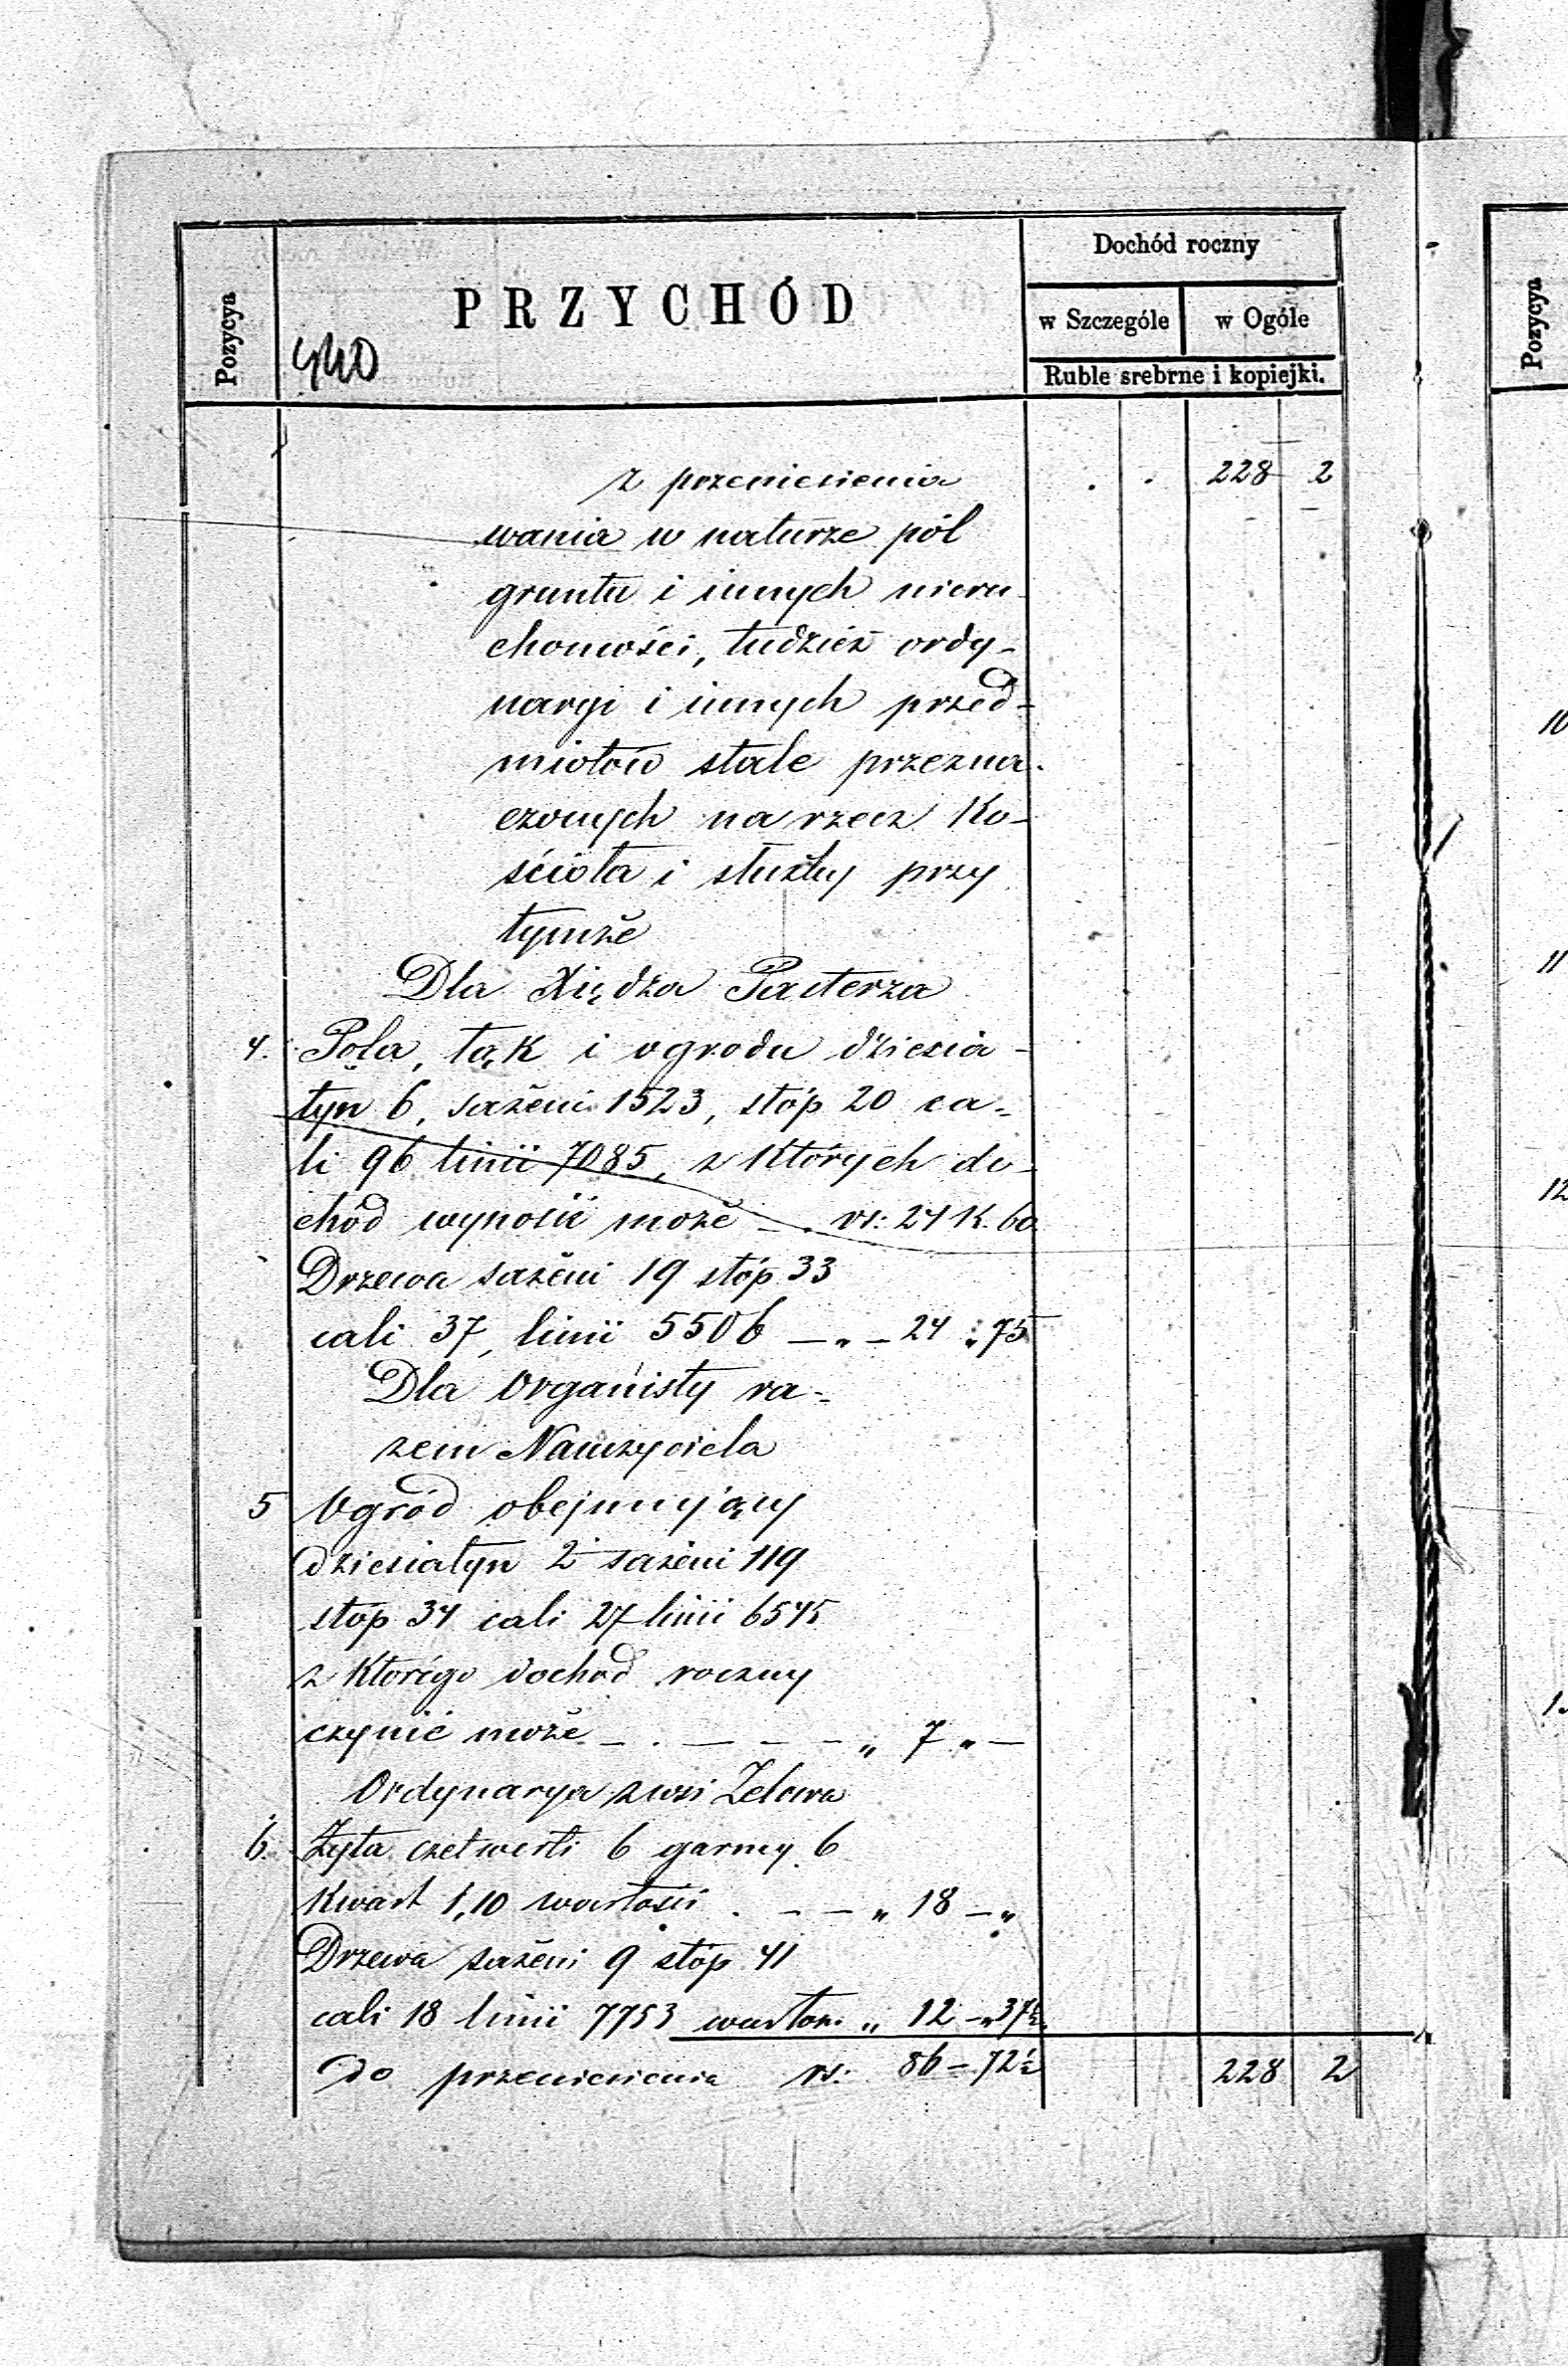 Pozycya
PRZYCHÓD
Dochód roczny
w Szczególe
w Ogóle
Ruble srebrne i kopiejki.
z przeniesienia . . 228 2
wania w naturze pól
gruntu i innych nieru-
chomości, tudzież ordy-
naryi i innych przed-
miotów stale przezna-
czonych na rzecz Ko-
ścioła i służby przy
tymże
Dla Xiędza Pasterza
4. Pola, łąk i ogrodu dziesia-
tyn 6, sażeni 1523, stóp 20 ca-
li 96 linii 7085, z których do-
chód wynosić może - . rs: 24 K. 60
Drzewa sażeni 19 stóp 33
cali 37, linii 5506 - „ - 24 „ 75
Dla Organisty ra-
zem Nauczyciela
5 Ogród obejmujący
dziesiatyn 2 sażeni 119
stóp 34 cali 27 linii 6545
z którego dochód roczny
czynić może - . - - - „ 7 „ -
Ordynarya z wsi Zelowa
6. Żyta czetwerti 6 garncy 6
Kwart 1,10 wartości . - - „ 18 - „
Drzewa sażeni 9 stóp 41
cali 18 linii 7753 wartości „ 12 - „ 37½
do przeniesienia rs: 86 - 72½ 228 2
Pozycya
10
11
12